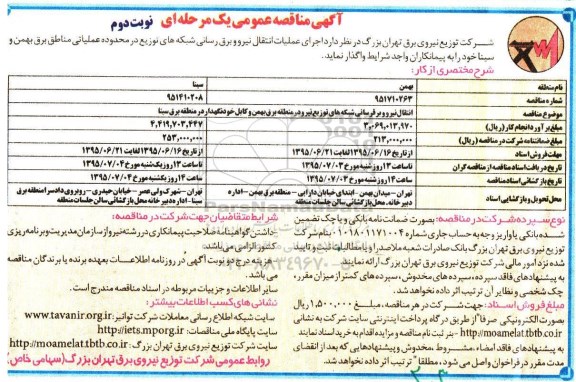 آگهی مناقصه عمومی یک مرحله ای نوبت دوم
شرکت توزیع نیروی برق تهران بزرگ در نظر دارد اجرای عملیات انتقال نیرو و برق رسانی شبکه های توزیع در محدوده عملیاتی مناطق برق بهمن و
سینا خود را به پیمانکاران واجد شرایط واگذار نماید.
شرح مختصری از کار:
نام منطقه بهمن سینا
شماره مناقصه ۹۵۱۷۱۰۲۶۳ ۹۵۱۴۱۰۲۰۸
موضوع مناقصه انتقال نیرو و برقرسانی شبکه های توزیع نیرو در منطقه برق بهمن و کابل خودنگهدار در منطقه برق سینا
مبلغ برآورد انجام کار (ریال) ۳,۰۶۹,۰۱۳,۹۷۰ ۴,۴۱۹,۷۰۳,۴۴۷
مبلغ ضمانتنامه شرکت در مناقصه (ریال) ۲۱۳,۰۰۰,۰۰۰ ۲۵۳,۰۰۰,۰۰۰
مهلت فروش اسناد از تاریخ ۱۳۹۵/۰۶/۱۶ لغایت ۱۳۹۵/۰۶/۲۱ از تاریخ ۱۳۹۵/۰۶/۱۶ لغایت ۱۳۹۵/۰۶/۲۱
تاریخ دریافت اسناد مناقصه از مناقصه گران تا ساعت ۱۳ روز شنبه مورخ ۱۳۹۵/۰۷/۰۳ تا ساعت ۱۳ روز یکشنبه مورخ ۱۳۹۵/۰۷/۰۴
تاریخ بازگشائی اسناد مناقصه ساعت ۱۴ روز شنبه مورخ ۱۳۹۵/۰۷/۰۳ ساعت ۱۴ روز یکشنبه مورخ ۱۳۹۵/۰۷/۰۴
محل تحویل و بازگشایی اسناد تهران - میدان بهمن - ابتدای خیابان دارایی - منطقه برق بهمن - اداره تهران - شهرک ولی عصر - خیابان حیدری - روبروی دادسرا منطقه برق
دبیرخانه، محل بازگشائی سالن جلسات منطقه سینا - اداره دبیرخانه محل بازگشائی سالن جلسات منطقه
نوع سپرده شرکت در مناقصه: بصورت ضمانت نامه بانکی و یا چک تضمین
شده بانکی یا واریز وجه به حساب جاری ۰۱۰۱۸۰۱۱۷۱۰۰۴ بنام شرکت
توزیع نیروی برق تهران بزرگ بانک صادرات شعبه ملاصدرا و یا مطالبات ثبت و تایید
شده نزد امور مالی شرکت توزیع نیروی برق تهران بزرگ ارائه نمایید
به پیشنهادهای فاقد سپرده، سپرده های مخدوش، سپرده های کمتر از میزان مقرر،
چک شخصی و نظایر آن ترتیب اثر داده نخواهد شد.
مبلغ فروش اسناد: جهت شرکت در هر مناقصه، مبلغ ۱,۵۰۰,۰۰۰ ریال
بصورت الکترونیکی صرفا از طریق درگاه پرداخت اینترنتی سایت شرکت به نشانی
http://moamelat.tbtb.co.ir - بنر ثبت نام مناقصه و مزایده اقدام به خرید اسناد نمایند
به پیشنهادهای فاقد امضاء، مشروط، مخدوش و پیشنهادهایی که بعد از انقضای
مدت مقرر در فراخوان واصل می شود، مطلقا ترتیب اثر داده نخواهد شد.
شرایط متقاضیان جهت شرکت در مناقصه:
- داشتن گواهینامه صلاحیت پیمانکاری در رشته نیرو از سازمان مدیریت و برنامه ریزی
کشور الزامی می باشد.
- هزینه درج دو نوبت آگهی در روزنامه اطلاعات بعهده برنده یا برندگان مناقصه
می باشد.
- سایر اطلاعات و جزییات مربوطه در اسناد مناقصه مندرج است.
نشانی های کسب اطلاعات بیشتر:
سایت شبکه اطلاع رسانی معاملات شرکت توانیر: www.tavanir.org.ir
سایت پایگاه ملی مناقصات: http://iets.mporg.ir
سایت شرکت توزیع نیروی برق تهران بزرگ: http://moamelat.tbtb.co.ir
روابط عمومی شرکت توزیع نیروی برق تهران بزرگ (سهامی خاص)